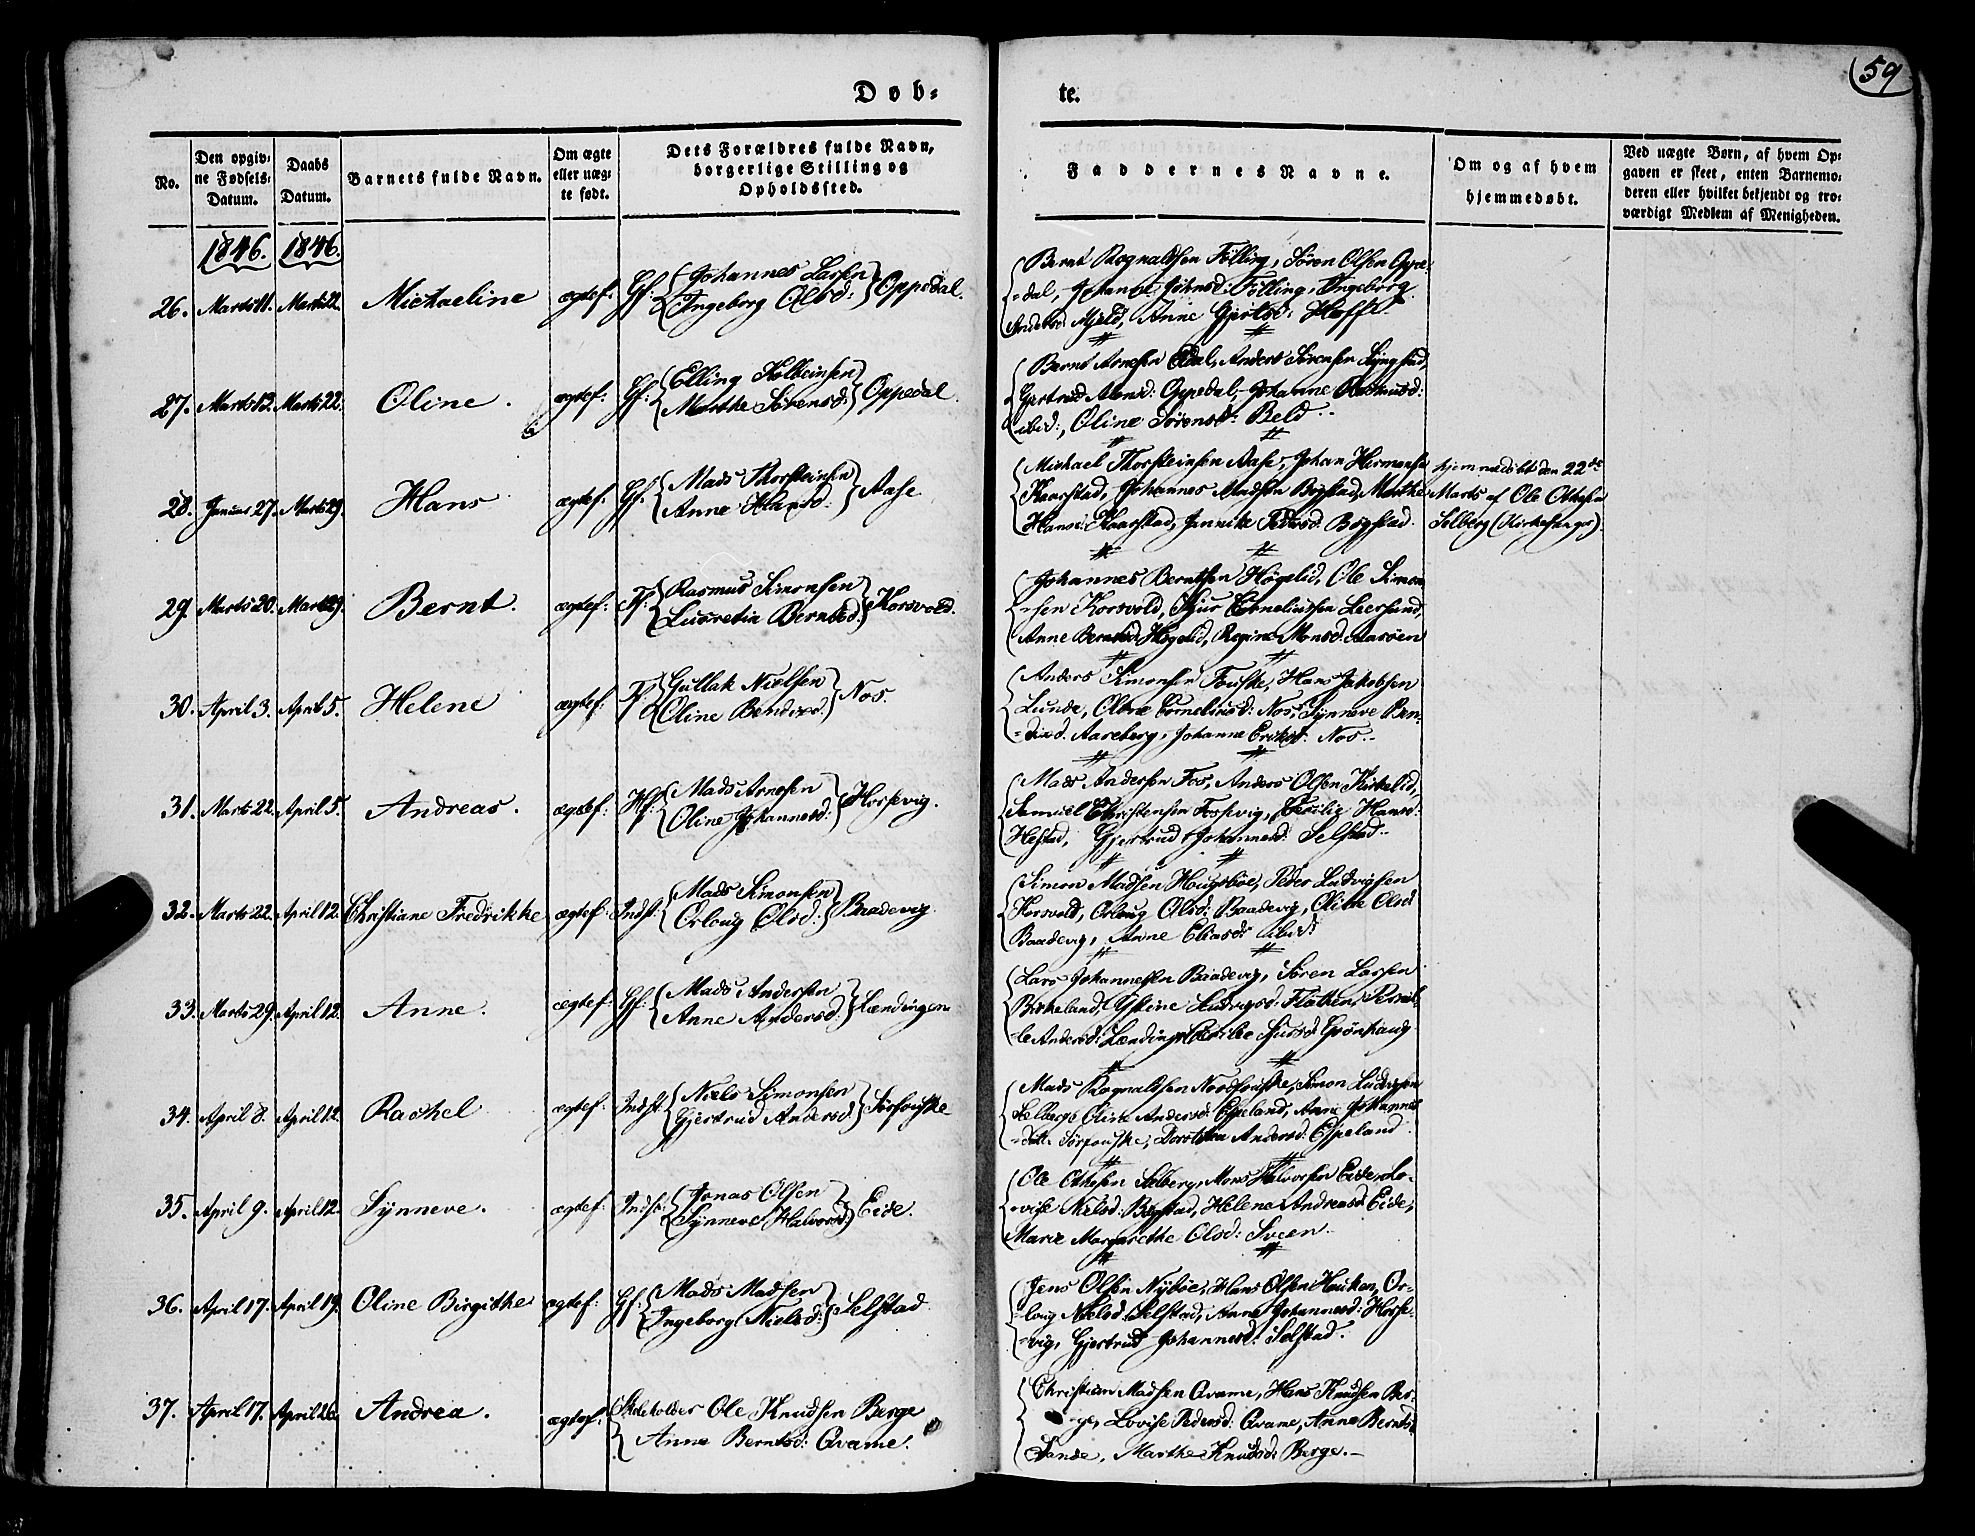 Døb-
te.
59
No.
Den opgiv-
ne Fødsels-
Datum.
Daabs
Datum.
Barnets fulde Navn.
Om ægte
eller uæg-
te født.
Dets Forældres fulde Navn,
borgerlige Stilling og
Opholdssted.
Faddernes Navne.
Om og af hvem
hjemmedøbt.
Ved uægte Børn, af hvem Op-
gaven er skeet, enten Barnemo-
deren eller hvilket bekjendt og tro-
værdigt Medlem af Menigheden.
1846. 1846.
26. Marts 11. Marts 22. Michaeline ægtef: Gf: Johannes Larsen
Ingeborg Olsd: Oppedal.
Bernt Rognaldsen Fölling, Søren Olsen Oppe-
dal, Johnsd: Fölling, Ingeborg
Andersd: Mjeld, Anne Gjertsd: Hoffl.
27. Marts 13. Marts 22. Oline. ægtef: Gf: Elling Kolbeinsen
Marthe Sörensd: Oppedal.
Bernt Arnesen Eldal, Anders Sörensen Syngstad,
Gjertrud Monsd: Oppedal, Johanne Rasmusd:
ibid:, Oline Sörensd: Beld.
28. Januar 27. Marts 29. Hans ægtef: Gf: Mads Thorsteinsen
Anne Hansd: Aase
Michael Thorsteinsen Aase, Johan Hermansen
Kaarstad, Johannes Madsen Bogstad, Marthe
Hansd: Kaarstad, Jannike Pedersd: Bogstad.
Hjemmedöbt den 22de
Marts af Ole Othesen
Solberg (Kirkesanger).
29. Marts 20. Marts 29. Bernt. ægtef: Rasmus Simonsen
Lucretia Berntsd: Korsvold.
Johannes Berntsen Högelid, Ole Simon-
sen Korsvold, Sjur Corneliussen Leersund,
Anne Berntsd: Högelid, Regine Monsd: Aaröen
30. April 3. April 5. Helene ægtef: Gullak Nielsen
Oline Bendixd: Nos.
Anders Simonsen Fouske, Hans Jakobsen
Lunde, Oline Corneliusd: Nos, Synneve Ben-
dixd: Aareberg, Johanne Eriksd: Nos.
31. Marts 22. April 5. Andreas. ægtef: Hf: Mads Arnesen
Oline Johannesd: Hossevig.
Mads Andersen Fos, Anders Olsen Kirkelid,
Samuel Christensen Fossevig, Cecilie Hansd:
Hestad, Gjertrud Johannesd: Selstad.
32. Marts 22. April 12. Christiane Fredrikke ægtef: Indst: Mads Simonsen
Orloug Olsd: Baadevig.
Simon Madsen Hougsböe, Peder Ludvigsen
Korsvold, Orloug Olsd: Baadevig, Oline Olsd:
Baadevig, Anne Eliasd: ibid:
33. Marts 29. April 12. Anne. ægtef: Gf: Mads Andersen
Anne Andersd: Lændingen
Lars Johannesen Baadevig, Sören Larsen
Birkeland, Ludvigsd: Flatten, Pernil-
le Andersd: Lænding, Cecilie Sjursd: Grönhaug
34. April 8. April 12. Rachel ægtef: Indst: Niels Simonsen
Gjertrud Andersd: Sörfouske
Mads Rognaldsen Nordfouske, Simon Ludvigsen
Selberg, Oline Andersd: Espeland, Anne Johannes-
datt: Sörfouske, Dorothea Andersd: Espeland.
35. April 9. April 12. Synneve. ægtef: Indst: Jonas Olsen
Synneve Halvorsd: Eide.
Ole Othesen Selberg, Mons Halvorsen Eide, Lo-
vise Nielsd: Bogstad, Helene Andreasd: Eide,
Marie Margarethe Olsd: Sveen.
36. April 17. April 19. Oline Birgithe ægtef: Gf: Mads Madsen
Ingeborg Nielsd: Selstad.
Jens Olsen Nyböe, Hans Olsen Hauken, Or-
loug Nielsd: Selstad, Anne Johannesd: Hosse-
vig, Gjertrud Johannesd: Selstad.
37. April 17. April 26. Andrea. ægtef: Skoleholder Ole Knudsen Berge
Anne Berntsd: Qvame.
Christian Madsen Qvame, Hans Knudsen Ber-
ge, Lovise Pedersd: Qvame, Anne Berntsd:
Sande, Marthe Knudsd: Berge.